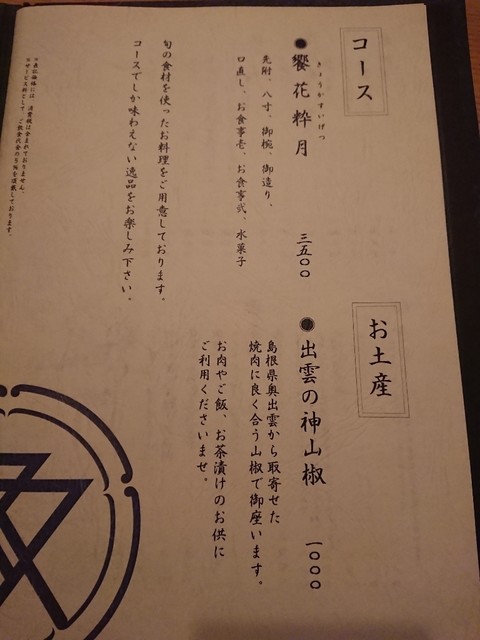 コース
饗花粋月
きょうかすいげつ
三五〇〇
先附、八寸、御椀、御造り、
口直し、お食事壱、お食事弐、水菓子
旬の食材を使ったお料理をご用意しております。
コースでしか味わえない逸品をお楽しみ下さい。
お土産
出雲の神山椒
一〇〇〇
島根県奥出雲から取寄せた
焼肉に良く合う山椒で御座います。
お肉やご飯、お茶漬けのお供に
ご利用くださいませ。
※表記価格には、消費税は含まれておりません。